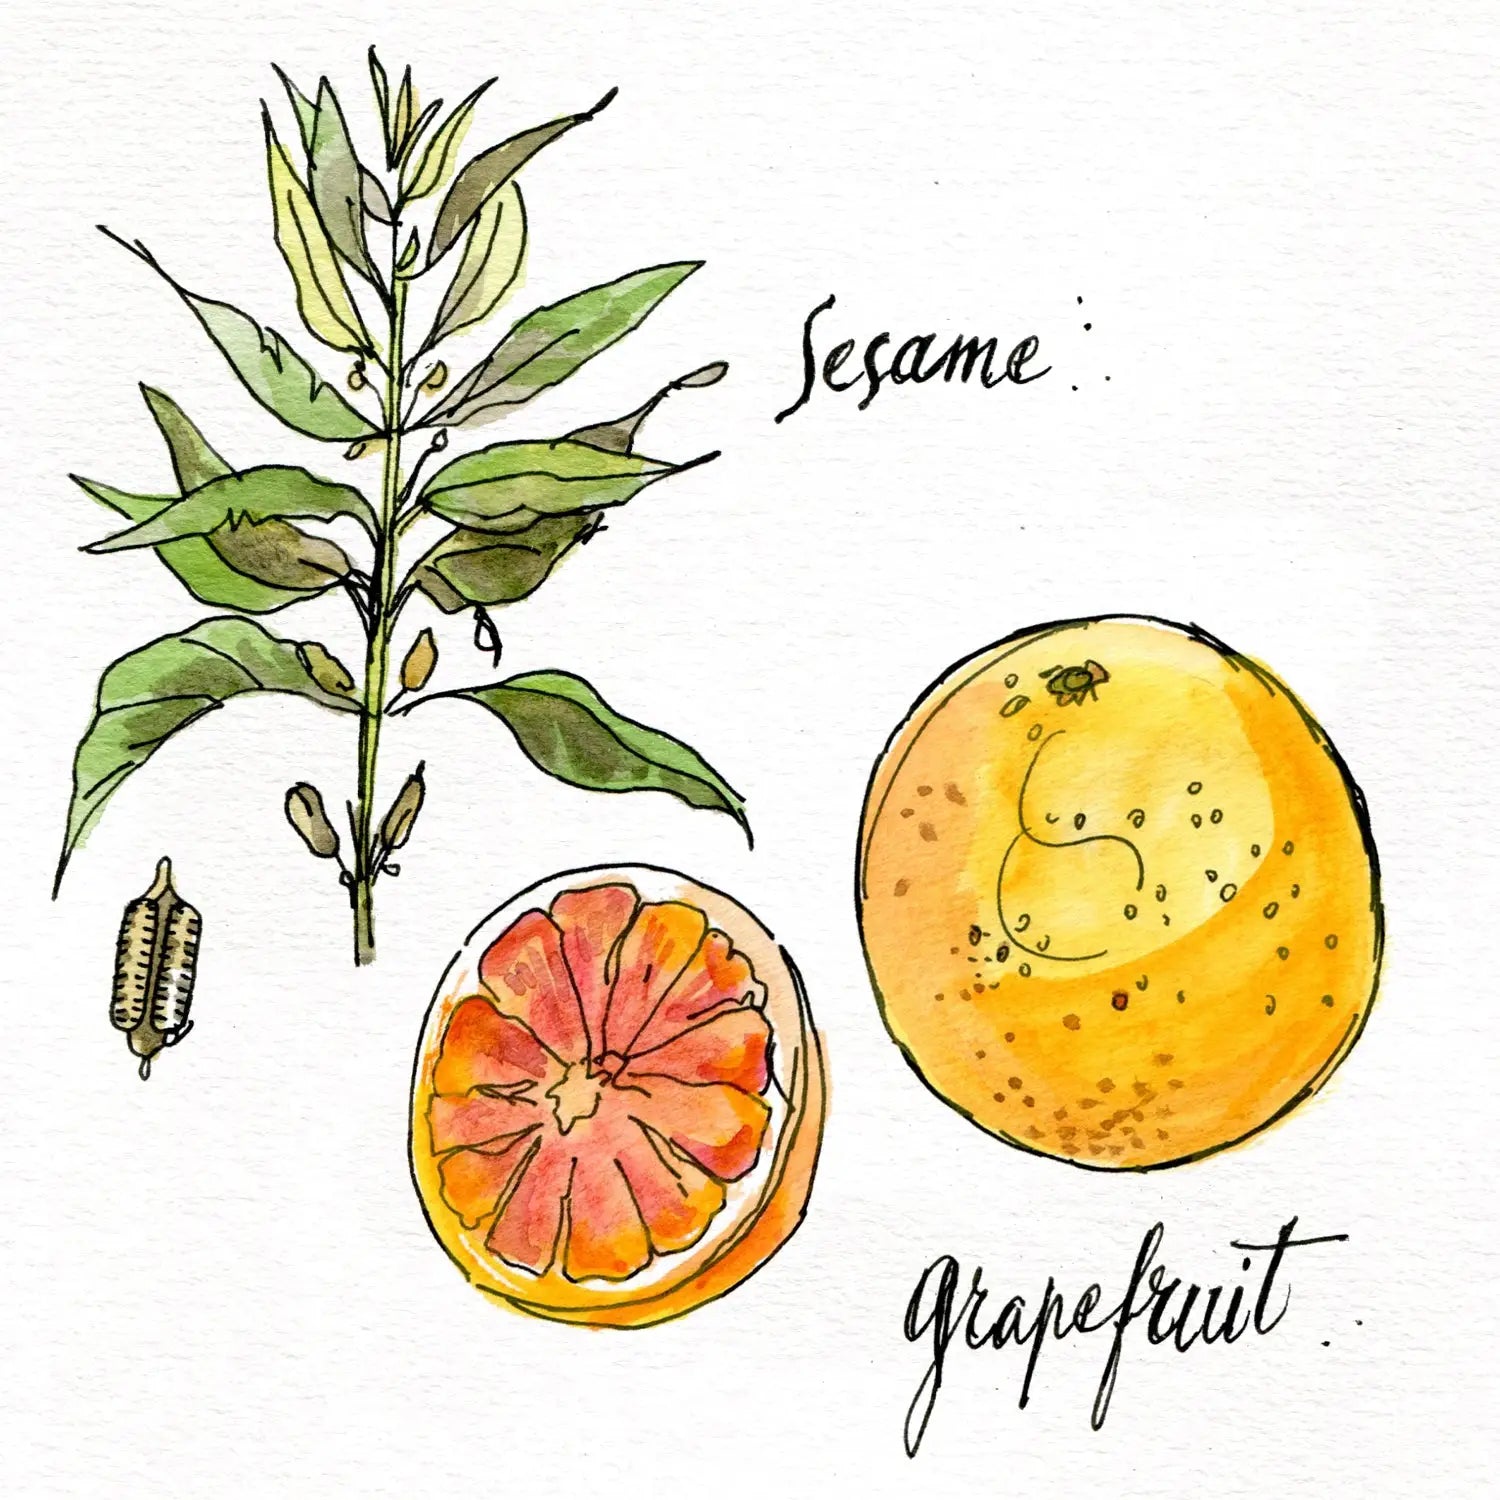 Sesame
grapefruit